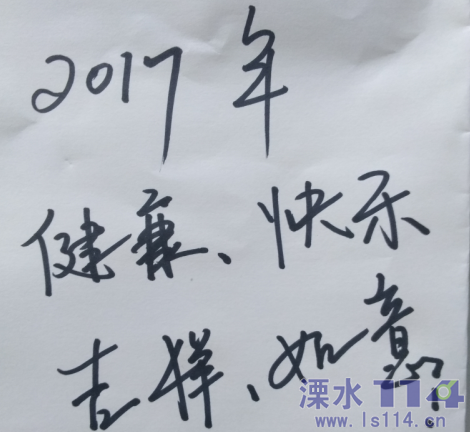 2017年
健康、快乐
吉祥、如意!
溧水114
www.ls114.cn